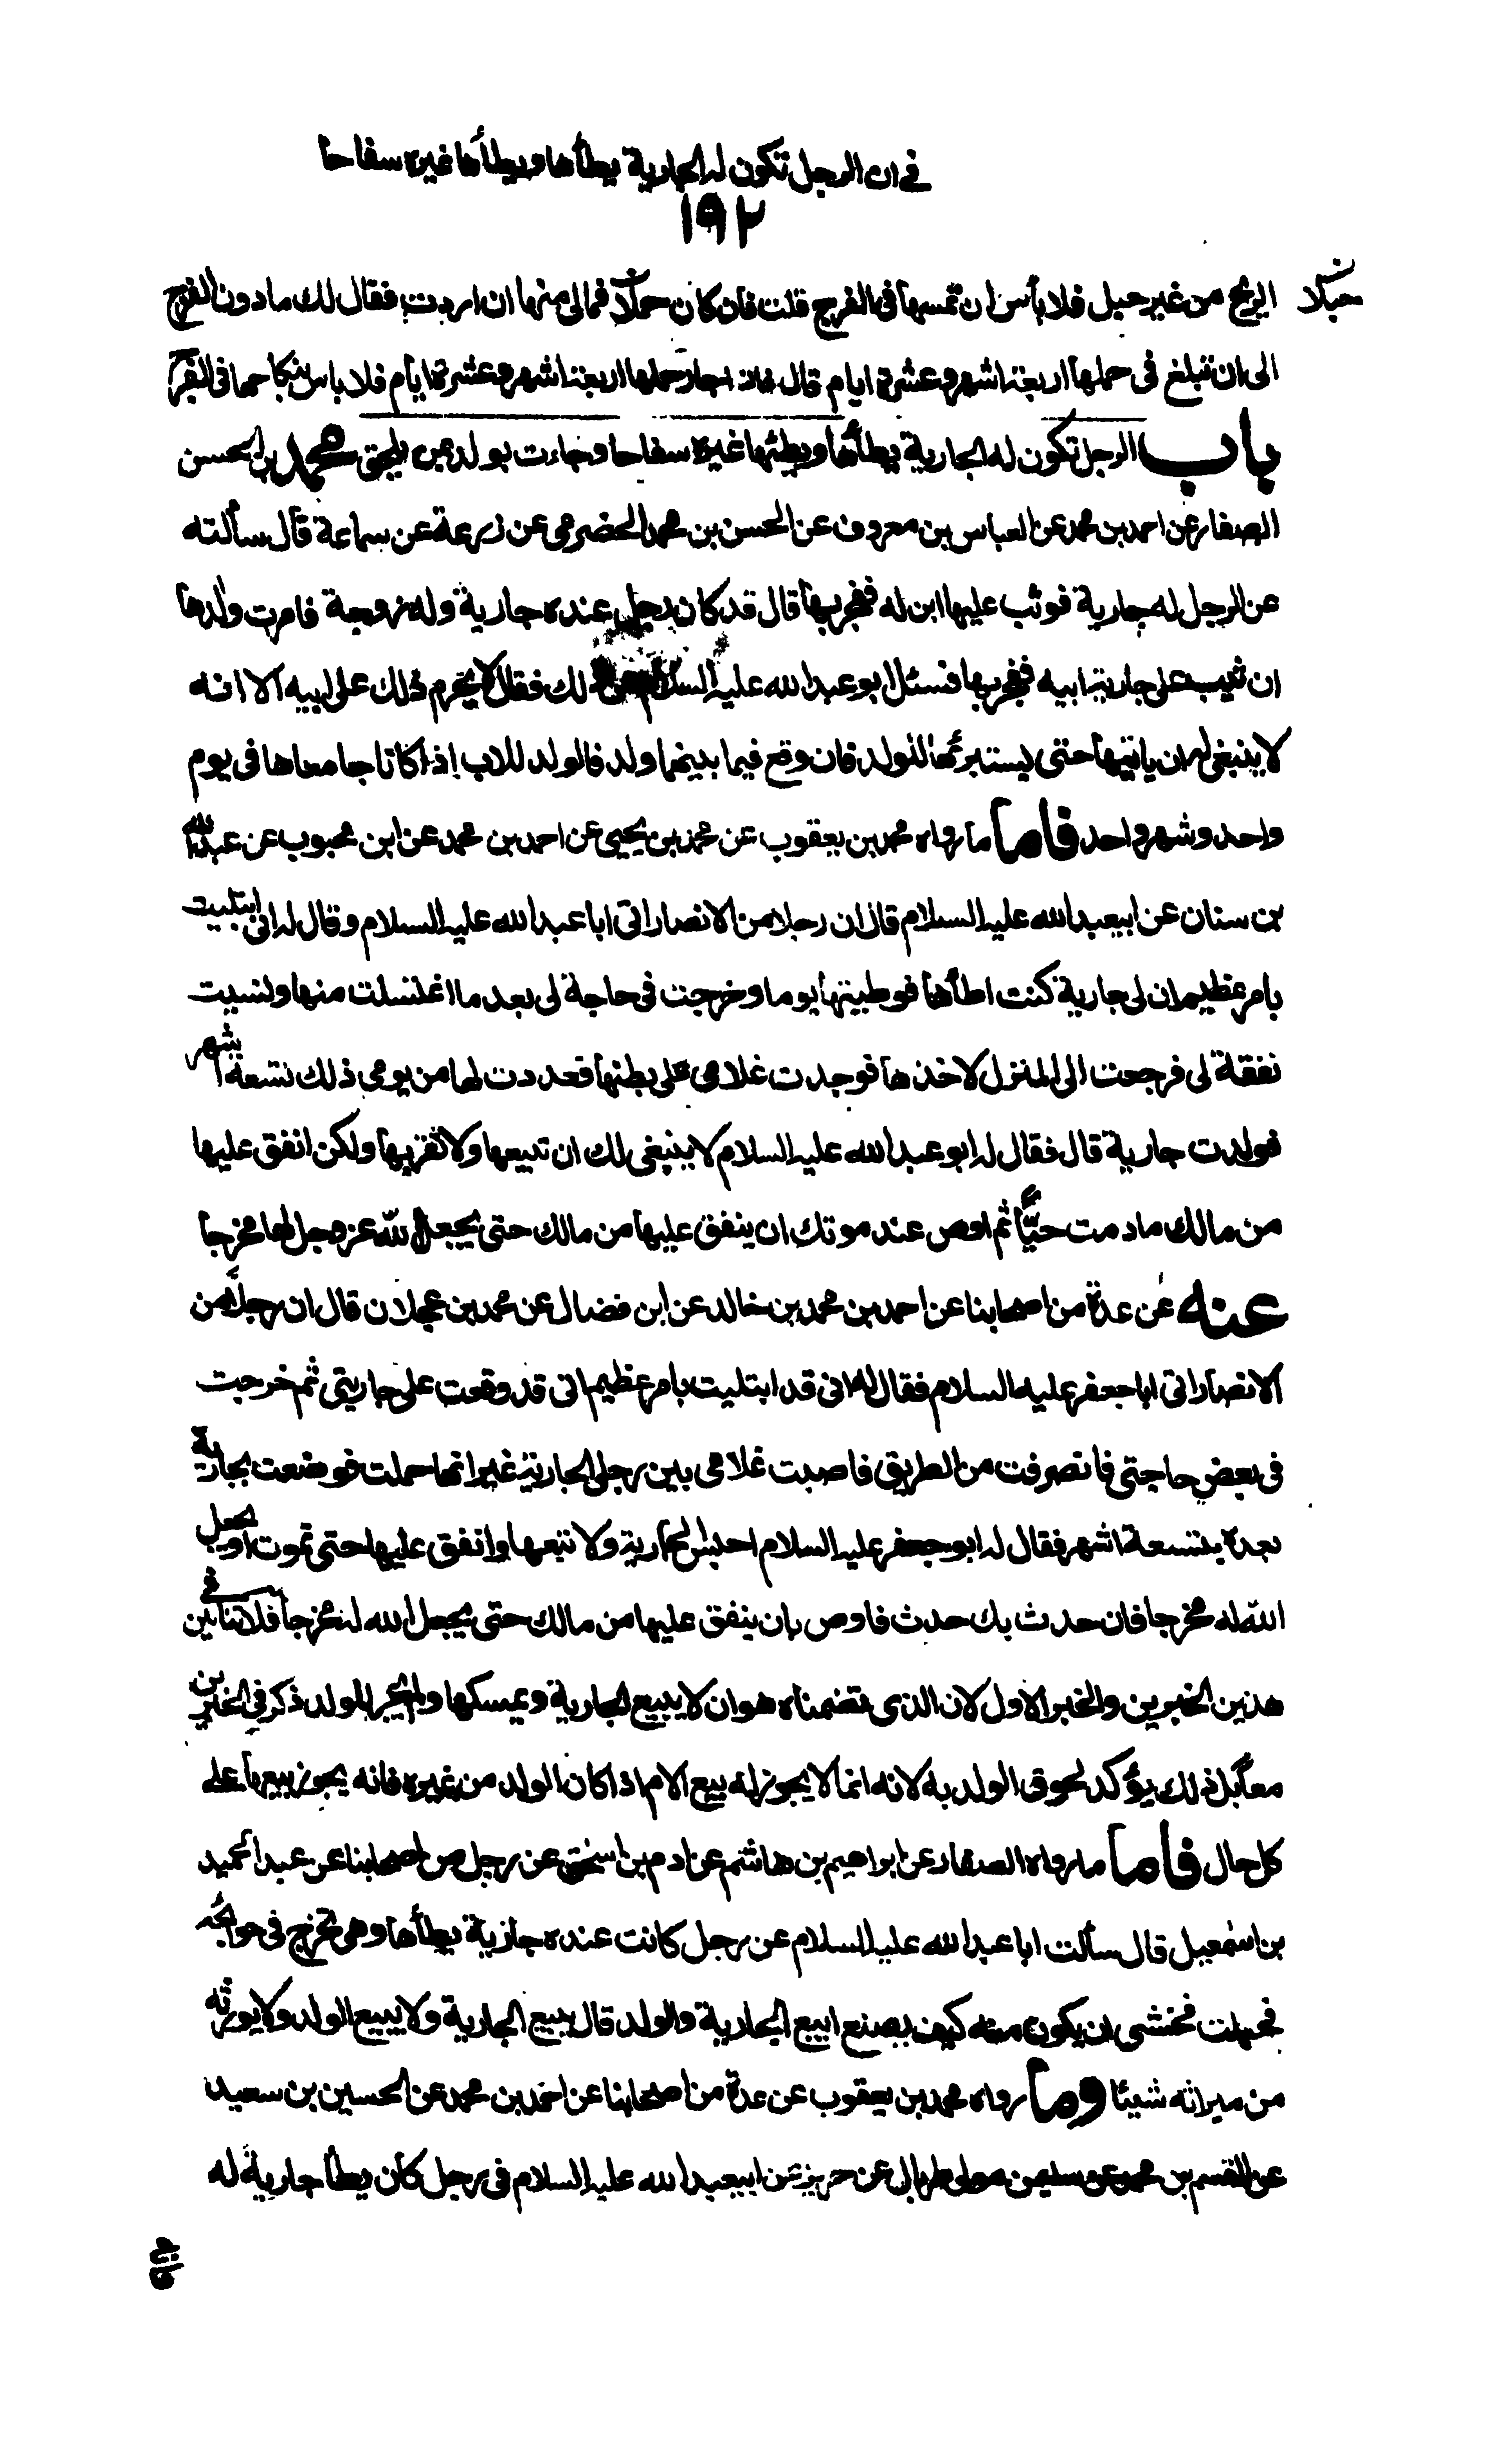 في ان الرجل تكون له الجارية يطأها ويطأها غيره سفاحا
١٩٢
حبلا
الريح من غير حبل فلا بأس ان تمسها في الفرج قلت فان كان حملا فمالي منها ان اردت فقال لك ما دون الفرج
الى ان تبلغ في حملها اربعة اشهر وعشرة ايام قال فاذا جاز حملها اربعة اشهر وعشرة ايام فلا باس بنكاحها في الفرج
باب الرجل تكون له الجارية يطأها ويطئها غيره سفاحا وجاءت بولد بمن يلحق محمد بن الحسن
الصفار عن احمد بن محمد عن العباس بن معروف عن الحسن بن محمد الحضرمي عن زرعة عن سماعة قال سألته
عن الرجل له جارية فوثب عليها ابن له ففجر بها قال قد كان رجل عنده جارية وله زوجة فامرت ولدها
ان يثب على جارية ابيه ففجر بها فسئل ابو عبد الله عليه السلام عن ذلك فقال لا يحرم ذلك على ابيه الا انه
لا ينبغي له ان ياتيها حتى يستبرئها للولد فان وقع فيما بينهما ولد فالولد للاب إذا كانا جامعاها في يوم
واحد وشهر واحد فاما ما رواه محمد بن يعقوب عن محمد بن يحيى عن احمد بن محمد عن ابن محبوب عن عبد الله
بن سنان عن ابيعبد الله عليه السلام قال ان رجلا من الانصار اتى ابا عبد الله عليه السلام وقال له اني ابتليت
بامر عظيم ان لي جارية كنت اطأها فوطيتها يوما وخرجت في حاجة لي بعد ما اغتسلت منها ونسيت
نفقة لي فرجعت الى المنزل لاخذها فوجدت غلامي على بطنها فعددت لها من يومي ذلك تسعة اشهر
فولدت جارية قال فقال له ابو عبد الله عليه السلام لا ينبغي لك ان تبيعها ولا تقربها ولكن انفق عليها
من مالك ما دمت حيّا ثم اوص عند موتك ان ينفق عليها من مالك حتى يجعل الله عز وجل لها مخرجا
عنه عن عدة من اصحابنا عن احمد بن محمد بن خالد عن ابن فضال عن محمد بن عجلان قال ان رجلا من
الانصار اتى ابا جعفر عليه السلام فقال له اني قد ابتليت بامر عظيم اني قد وقعت على جاريتي ثم خرجت
في بعض حاجتي فانصرفت من الطريق فاصبت غلامي بين رجلي الجارية غير انها حملت فوضعت بجارية
بعده بتسعة اشهر فقال له ابو جعفر عليه السلام احبس الجارية ولا تبعها وانفق عليها حتى تموت او يجعل
الله له مخرجا فان حدث بك حدث فاوص بان ينفق عليها من مالك حتى يجعل الله له مخرجا فلا تنافي بين
هذين الخبرين والخبر الاول لان الذي تضمناه هو ان لا يبيع الجارية ويمسكها ولم يجر للولد ذكر في الخبرين
معاً بل ذلك يؤكد لحوق الولد به لانه انما لا يجوز له بيع الام اذا كان الولد من غيره فانه يجوز بيعها على
كل حال فاما ما رواه الصفار عن ابراهيم بن هاشم عن ادم بن اسحق عن رجل من اصحابنا عن عبد الحميد
بن اسمعيل قال سألت ابا عبد الله عليه السلام عن رجل كانت عنده جارية يطأها وهي تخرج في حوائجه
فحبلت فخشي ان يكون منه كيف يصنع ايبيع الجارية والولد قال يبيع الجارية ولا يبيع الولد ولا يورثه
من ميراثه شيئا وما رواه محمد بن يعقوب عن عدة من اصحابنا عن احمد بن محمد عن الحسين بن سعيد
عن القسم بن محمد عن سليمن مولى طربال عن حريز عن ابيعبد الله عليه السلام في رجل كان يطأ جارية له